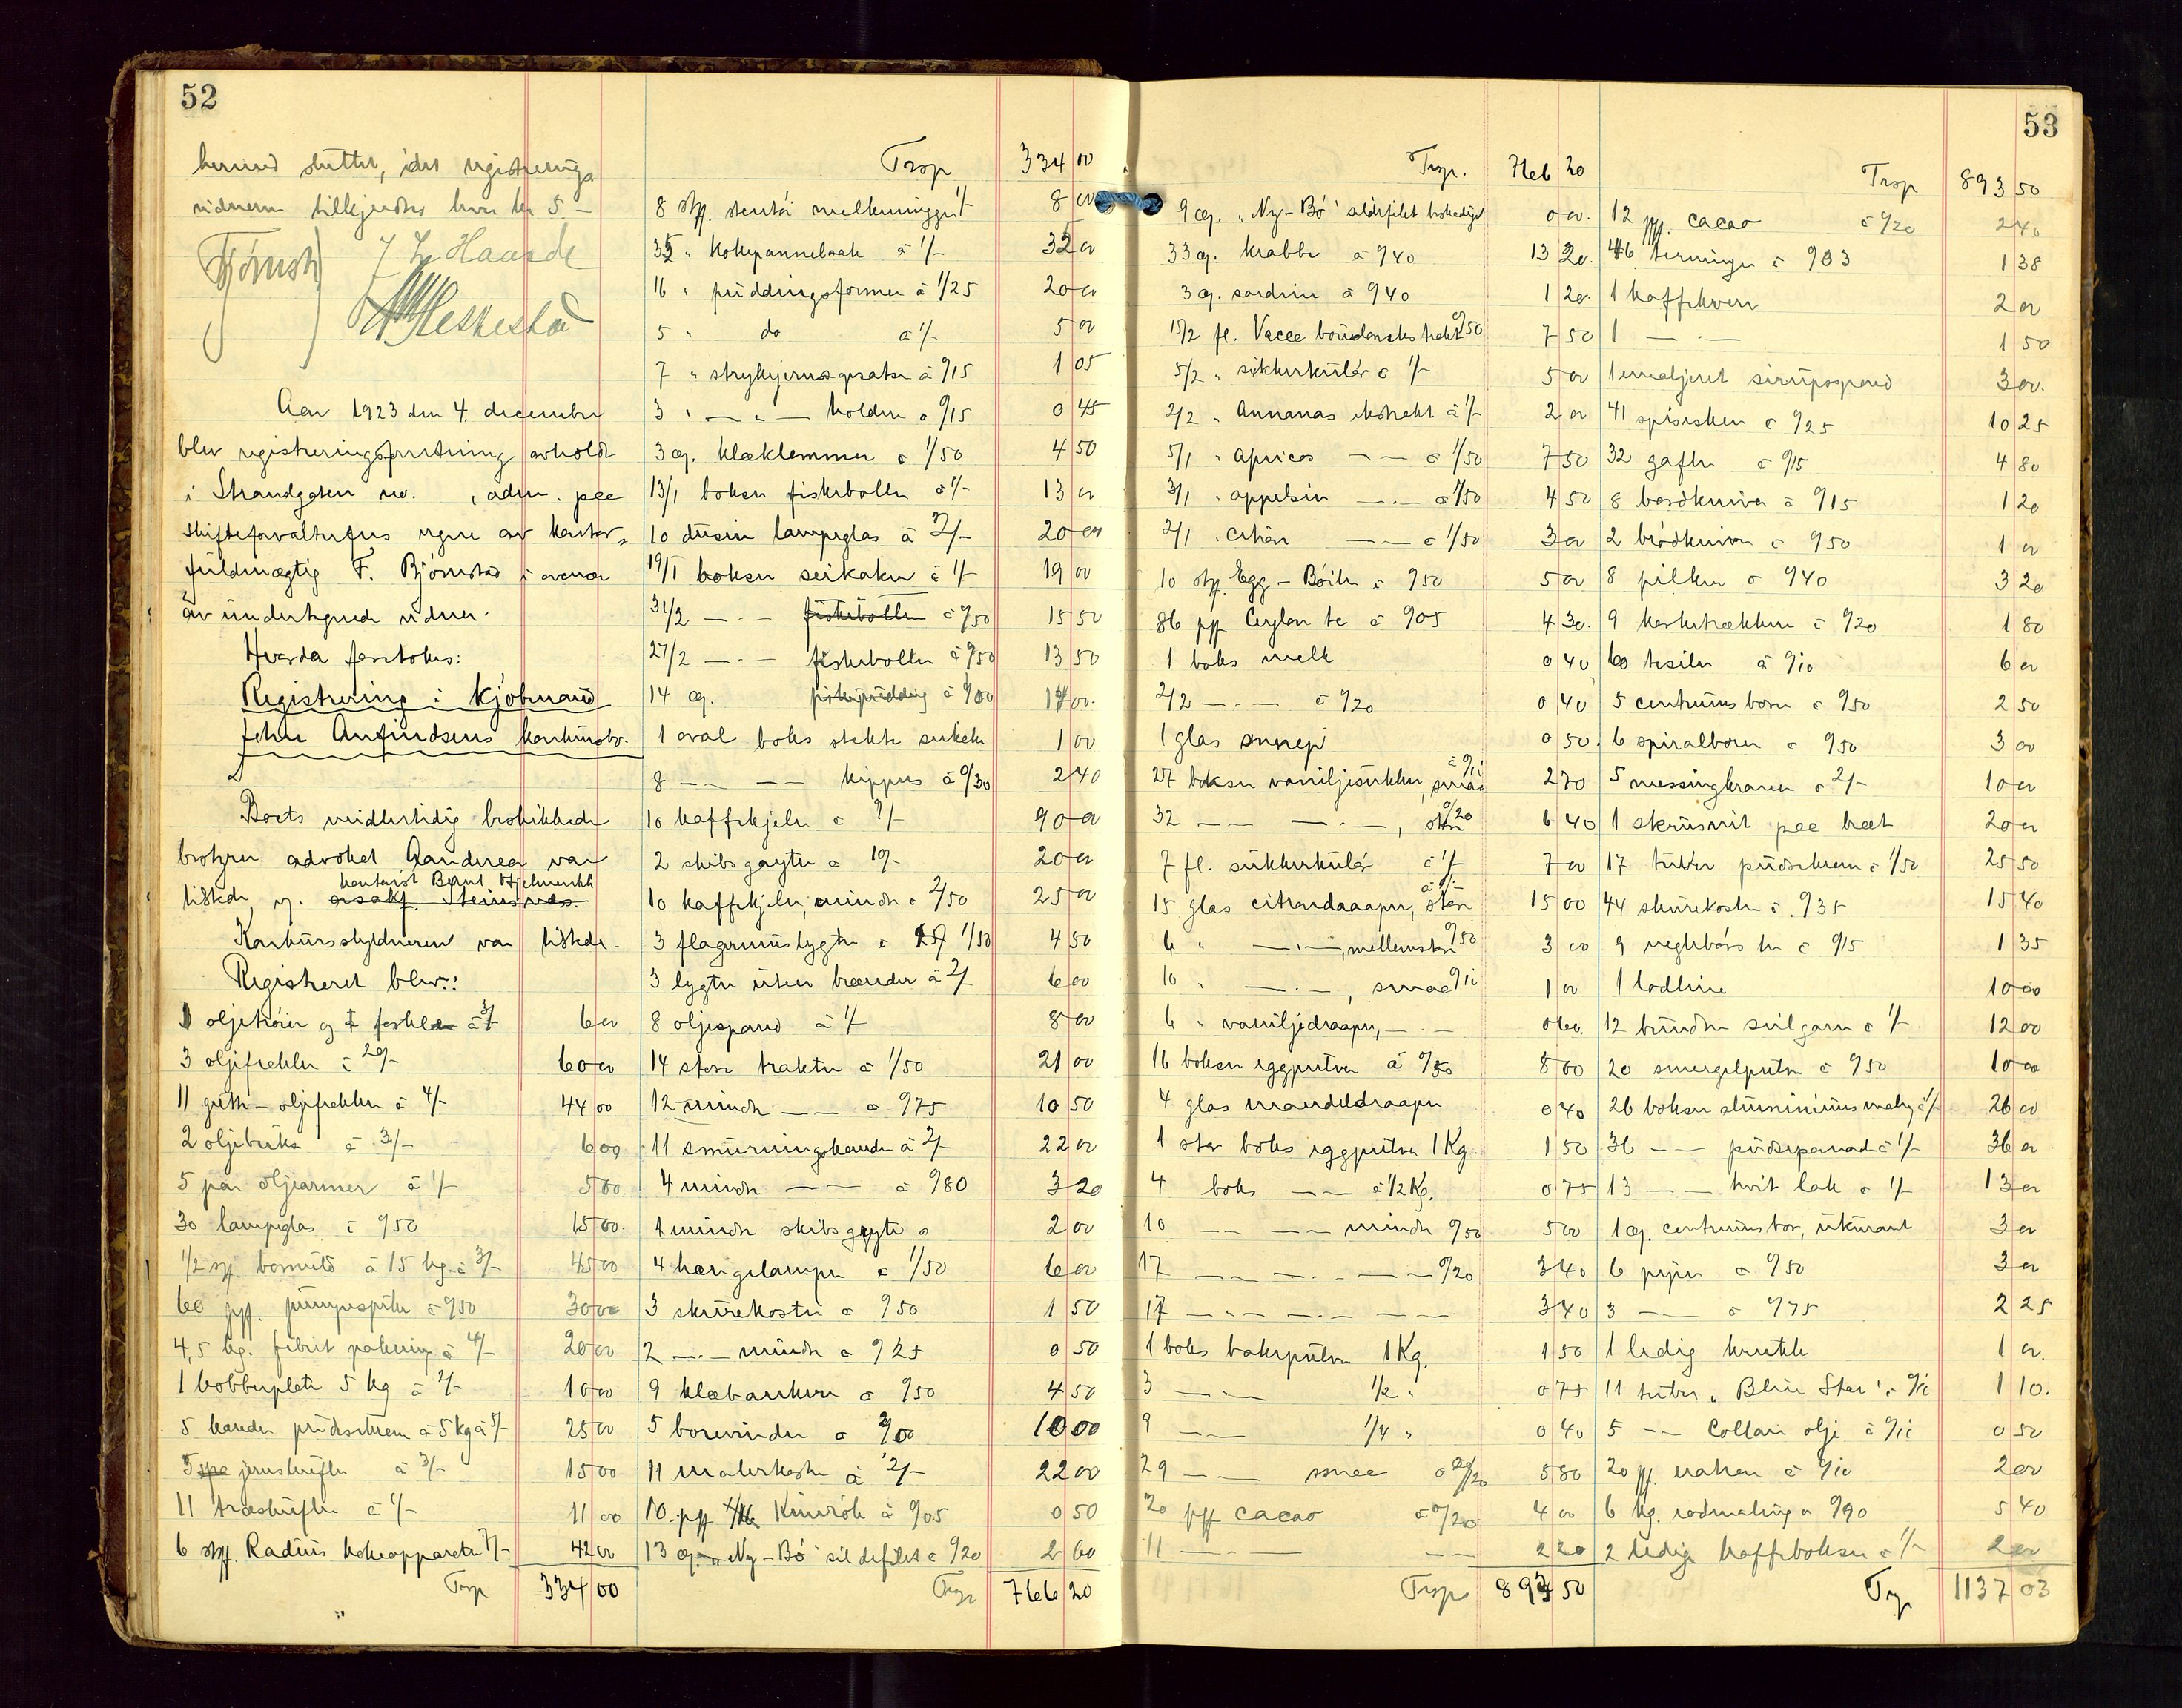 52
hermed sluttet, idet registrerings
vidnerne tilkjendtes hver kr 5.–
Bjørnstd J L Haarde
Heskestad
Aar 1923 den 4. december
blev registreringsforretning avholdt
i Strandgaten no. , adm. paa
skifteforvalterens vegne av kontor-
fuldmægtig F. Bjørnstad i overvær
av undertegnede vidner.
Hvorda foretokes:
Registrering i kjøbmand
John Anfindsens konkursbo.
Boets midlertidig beskikkede
bestyrer advokat Aanderaa var
kontorist Bernt Hjelmervik
tilstede, og
Konkursskyldneren var tilstede.
Registreret blev:
1 oljetrøie og 1 à 3/- 6 00
3 oljefrakker à 20/- 60 00
11 gutte-oljefrakker à 4/- 44 00
2 oljebukser à 3/- 6 00
5 par oljeermer à 1/- 5 00
30 lampeglas à 0/50 15 00
1/2 à 15 kg. à 3/- 45 00
60 0/50 30 00
4,5 kg. fibrit pakning à 4/- 20 00
1 kobberplate 5 kg à 2/- 10 00
5 kander pudsekrem à 5 kg à 5/- 25 00
5 jernskufler à 3/- 15 00
11 træskufler à 1/- 11 00
6 stk. Radius kokeapparater 7/- 42 00
Trsp 334 00
Trsp 334 00
8 stk. stentøi melkemugger 1/- 8 00
32 " kokepannelaak à 1/- 32 00
16 " puddingsformer à 1/25 20 00
5 " do à 1/- 5 00
7 " strykejernsapparater à 0/15 1 05
3 " — " — holdere à 0/15 0 45
3 æ. klæklemmer à 1/50 4 50
13/1 bokser fiskeboller à 1/- 13 00
10 dusin lampeglas à 2/- 20 00
19/1 bokser seikaker à 1/- 19 00
31/2 — " — fiskeboller à 0/50 15 50
27/2 — " — fiskeboller à 0/50 13 50
14 æ. fiskepudding à 1/00 14 00
1 oval boks stekte seikaker 1 00
8 — — — — kippers à 0/30 2 40
10 kaffekjeler à 9/- 90 00
2 skibsgryter à 10/- 20 00
10 kaffekjeler, mindre à 2/50 25 00
3 flagermuslygter à 1/50 4 50
3 lygter uten brænder à 2/- 6 00
8 oljespand à 1/- 8 00
14 store trakter à 1/50 21 00
12 mindre — — à 0/75 10 50
11 smurningskander à 2/- 22 00
4 mindre — — à 0/80 3 20
1 mindre skibsgryte à 2 00
4 hængelamper à 1/50 6 00
3 skurekoster à 0/50 1 50
2 — " — mindre à 0/25 0 50
9 klæbanker à 0/50 4 50
5 borvinder à 2/00 10 00
11 malerkoster à 2/- 22 00
10 pk Kinrøk à 0/05 0 50
13 æ. "Ny-Bø" sildefilet à 0/20 2 60
Trsp 766 20
53
Trsp. 766 20
9 æ. "Ny-Bø" sildefilet beskadiget 0 00
33 æ. krabbe à 0/40 13 20
3 æ. sardiner à 0/40 1 20
15/2 fl. 0/50 7 50
5/2 " sukkerkulør à 1/- 5 00
2/2 " Annanas ekstrakt à 1/- 2 00
5/1 " apricos — — à 1/50 7 50
3/1 " appelsin — " — à 1/50 4 50
2/1 " citron — — à 1/50 3 00
10 stk. Egg-Bøiler à 0/50 5 00
86 pk Ceylon te à 0/05 4 30
1 boks melk 0 40
2/2 — " — à 0/20 0 40
1 glas sennep 0 50
27 bokser vaniljesukker, smaa à 0/10 2 70
32 — — — " —, store 0/20 6 40
7 fl. sukkerkulør à 1/- 7 00
15 glas citrondraaper, store à 1/- 15 00
6 " — " —, mellemstore 0/50 3 00
10 " — " —, smaa 0/10 1 00
6 " vaniljedraaper, — " — 0 60
16 bokser eggpulver à 0/50 8 00
4 glas mandeldraaper 0 40
1 stor boks eggpulver 1 Kg. 1 50
4 boks — — à 1/2 Kg. 0 75
10 — — — — mindre 0/50 5 00
17 — — — " — — — 0/20 3 40
17 — " — — " — — — 3 40
1 boks bakepulver 1 Kg. 1 50
3 — " — 1/2 " 0 75
9 — — 1/4 " 0 40
29 — — smaa à 0/20 5 80
20 pk cacao à 0/20 4 00
11 — " — — — 2 20
Trsp 893 50
Trsp 893 50
12 pk. cacao à 0/20 2 40
46 terninger à 0/03 1 38
1 kaffekvern 2 00
1 — " — 1 50
1 emaljeret sirupsspand 3 00
41 spiseskeer à 0/25 10 25
32 gafler à 0/15 4 80
8 bordkniver à 0/15 1 20
2 brødkniver à 0/50 1 00
8 pilker à 0/40 3 20
9 korketrækkere à 0/20 1 80
60 tesiler à 0/10 6 00
5 centrumsborer à 0/50 2 50
6 spiralborer à 0/50 3 00
5 messingkraner à 2/- 10 00
1 skruestik paa bræt 20 00
17 tuber pudsekrem à 1/50 25 50
44 skurekoster à 0/35 15 40
9 neglebørster à 0/15 1 35
1 lodline 10 00
12 bundter seilgarn à 1/- 12 00
20 smergelpulver à 0/50 10 00
26 bokser aluminiums maling à 1/- 26 00
36 — — pudsepomade à 1/- 36 00
13 — — hvit lak à 1/- 13 00
1 æ. centrumsbor, ukurant 3 00
6 piper à 0/50 3 00
3 — — à 0/75 2 25
1 ledig krukke 1 00
11 tuber "Blue Star" à 0/10 1 10
5 — — Collan olje à 0/10 0 50
20 pk à 0/10 2 00
6 kg. rødmaling à 0/90 5 40
2 ledige kaffebokser à 1/- 2 00
Trsp 1137 03